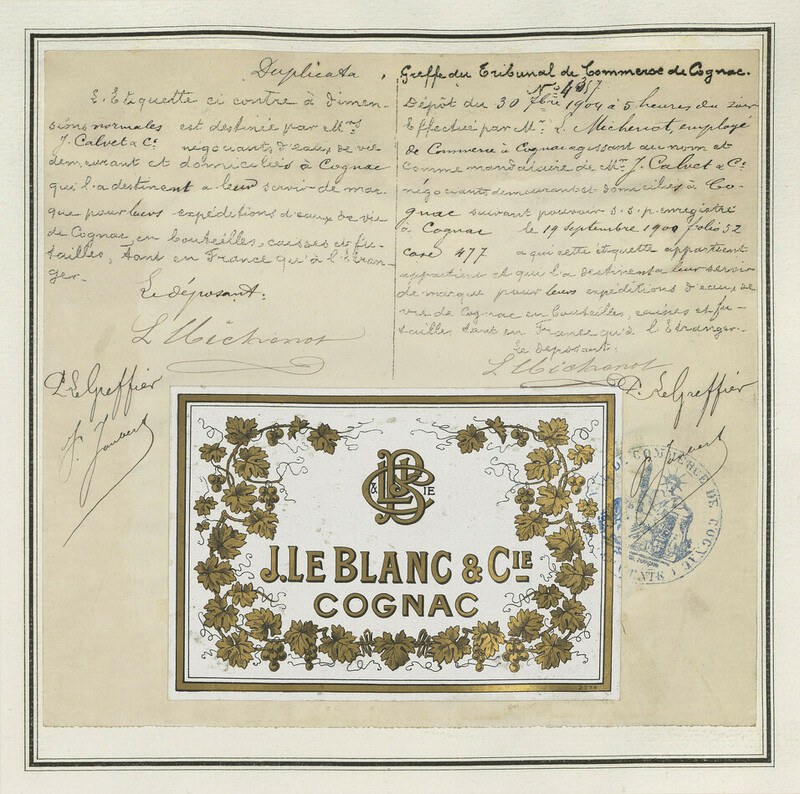 Duplicata
L'Etiquette ci contre à dimen-
sions normales est destinée par Mrs
J. Calvet & Cie négociants d'eaux de vie
demeurant et domiciliés à Cognac
qui l'a destinent a leur servir de mar-
que pour leurs expéditions d'eaux de vie
de Cognac, en bouteilles, caisses et fu-
tailles, tant en France qu'à l'étran-
ger.
Le déposant:
L Michenot
P. Le Greffier
J. Joubert
Greffe du Tribunal de Commerce de Cognac.
No 4357
Dépôt du 30 7bre 1909 à 5 heures du soir
Effectué par Mr L. Michenot, employé
de Commerce à Cognac agissant au nom et
comme mandataire de Mrs J. Calvet & Cie
négociants demeurant et domiciliés à Co-
gnac suivant pouvoir s.s.p. enregistré
à Cognac le 19 Septembre 1900 folio 52
case 477 a qui cette étiquette appartient
appartient et qui l'a destinent a leur servir
de marque pour leurs expéditions d'eaux de
vie de Cognac en bouteilles, caisses et fu-
tailles tant en France qu'à l'Etranger.
Le deposant:
L Michenot
P. Le Greffier
J. Joubert
COMMERCE DE COGNAC
J. LE BLANC & CIE
COGNAC